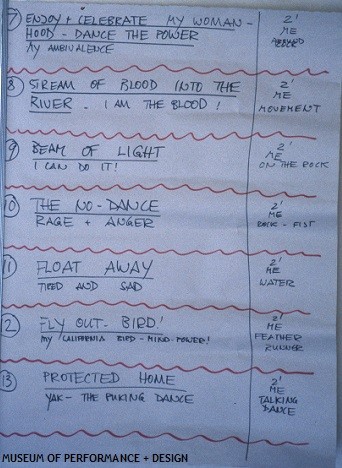 7 ENJOY + CELEBRATE MY WOMAN-
HOOD - DANCE THE POWER
MY AMBIVALENCE
2'
ME
ROCK
8 STREAM OF BLOOD INTO THE
RIVER - I AM THE BLOOD!
2'
ME
MOVEMENT
9 BEAM OF LIGHT
I CAN DO IT!
2'
ME
ON THE ROCK
10 THE NO-DANCE
RAGE + ANGER
2'
ME
ROCK - FIST
11 FLOAT AWAY
TIRED AND SAD
2'
ME
WATER
12 FLY OUT - BIRD!
MY CALIFORNIA BIRD - MIND POWER!
2'
ME
FEATHER
RUNNER
13 PROTECTED HOME
YAK - THE PUKING DANCE
2'
ME
TALKING
DANCE
MUSEUM OF PERFORMANCE + DESIGN